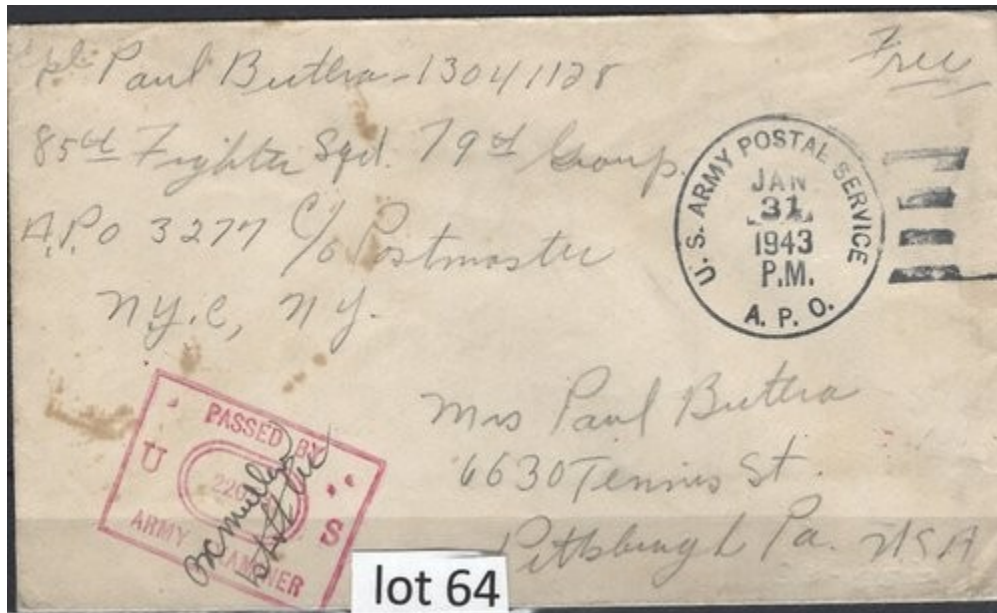 Cpl. Paul Buthra - 13041128
85th Fighter Sqd. 79th Group.
A.P.O 3277 C/o Postmaster
N.Y.C, N.Y.
Free
U. S. ARMY POSTAL SERVICE
JAN
31
1943
P.M.
A. P. O.
PASSED BY
U S
ARMY EXAMINER
Mrs Paul Buthra
6630 Tennis St.
Pittsburgh Pa. USA
lot 64